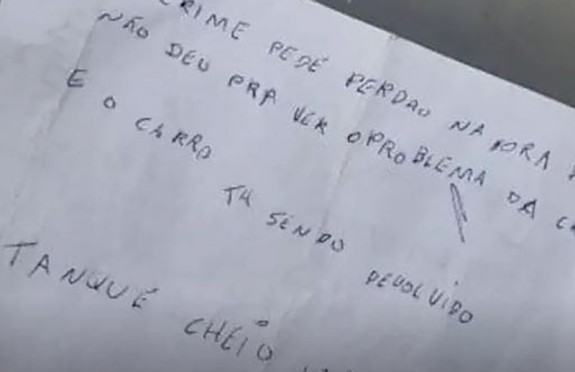 CRIME PEDE PERDÃO NA HORA
NÃO DEU PRA VER O PROBLEMA DA
E O CARRO
TÁ SENDO DEVOLVIDO
TANQUE CHEIO